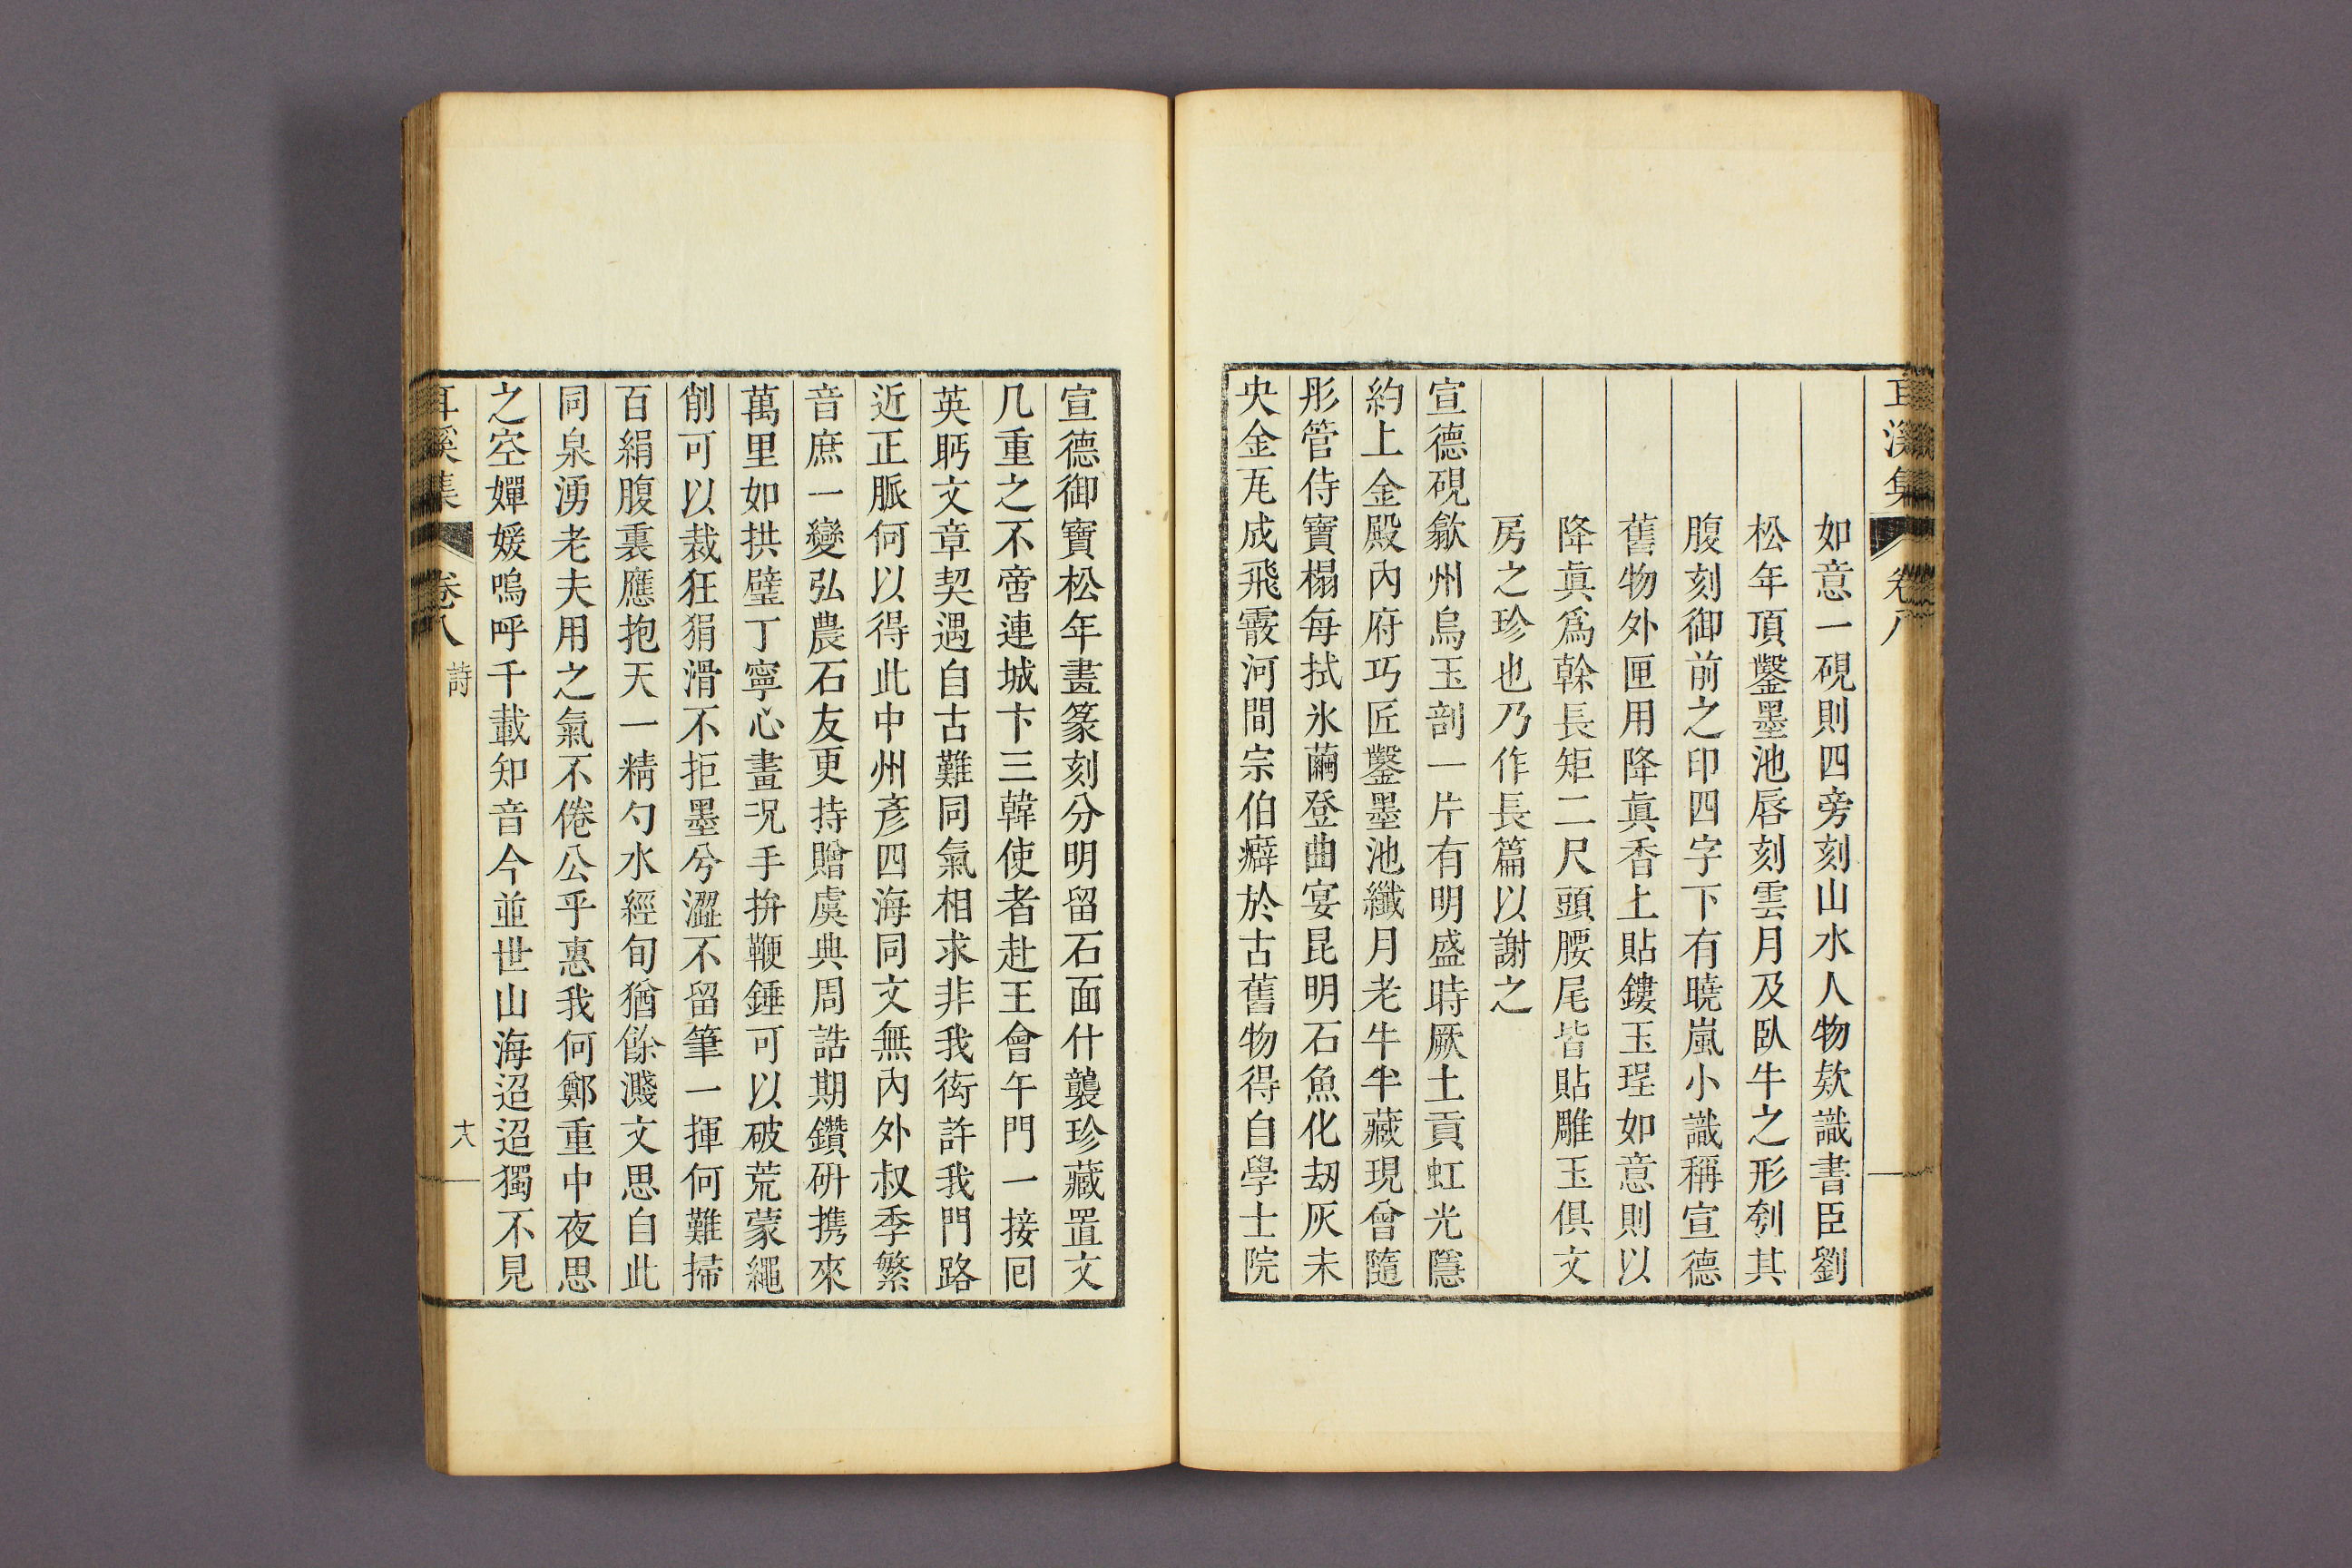 耳溪集 卷八
如意一硯則四旁刻山水人物欵識書臣劉
松年頂鑿墨池唇刻雲月及臥牛之形刳其
腹刻御前之印四字下有曉嵐小識稱宣德
舊物外匣用降眞香上貼鏤玉珵如意則以
降眞爲榦長矩二尺頭腰尾皆貼雕玉俱文
房之珍也乃作長篇以謝之
宣德硯歙州烏玉剖一片有明盛時厥土貢虹光隱
約上金殿內府巧匠鑿墨池纖月老牛半藏現曾隨
彤管侍寶榻每拭氷繭登曲宴昆明石魚化刼灰未
央金瓦成飛霰河間宗伯癖於古舊物得自學士院
宣德御寶松年畫篆刻分明留石面什襲珍藏置文
几重之不啻連城卞三韓使者赴王會午門一接回
英眄文章契遇自古難同氣相求非我衒許我門路
近正脈何以得此中州彥四海同文無內外叔季繁
音庶一變弘農石友更持贈虞典周誥期鑽硏携來
萬里如拱璧丁寧心畫况手拚鞭錘可以破荒蒙繩
削可以裁狂狷滑不拒墨兮澀不留筆一揮何難掃
百絹腹裏應抱天一精勺水經旬猶餘濺文思自此
同泉湧老夫用之氣不倦公乎惠我何鄭重中夜思
之空嬋媛嗚呼千載知音今並世山海迢迢獨不見
耳溪集 卷八 詩 十八